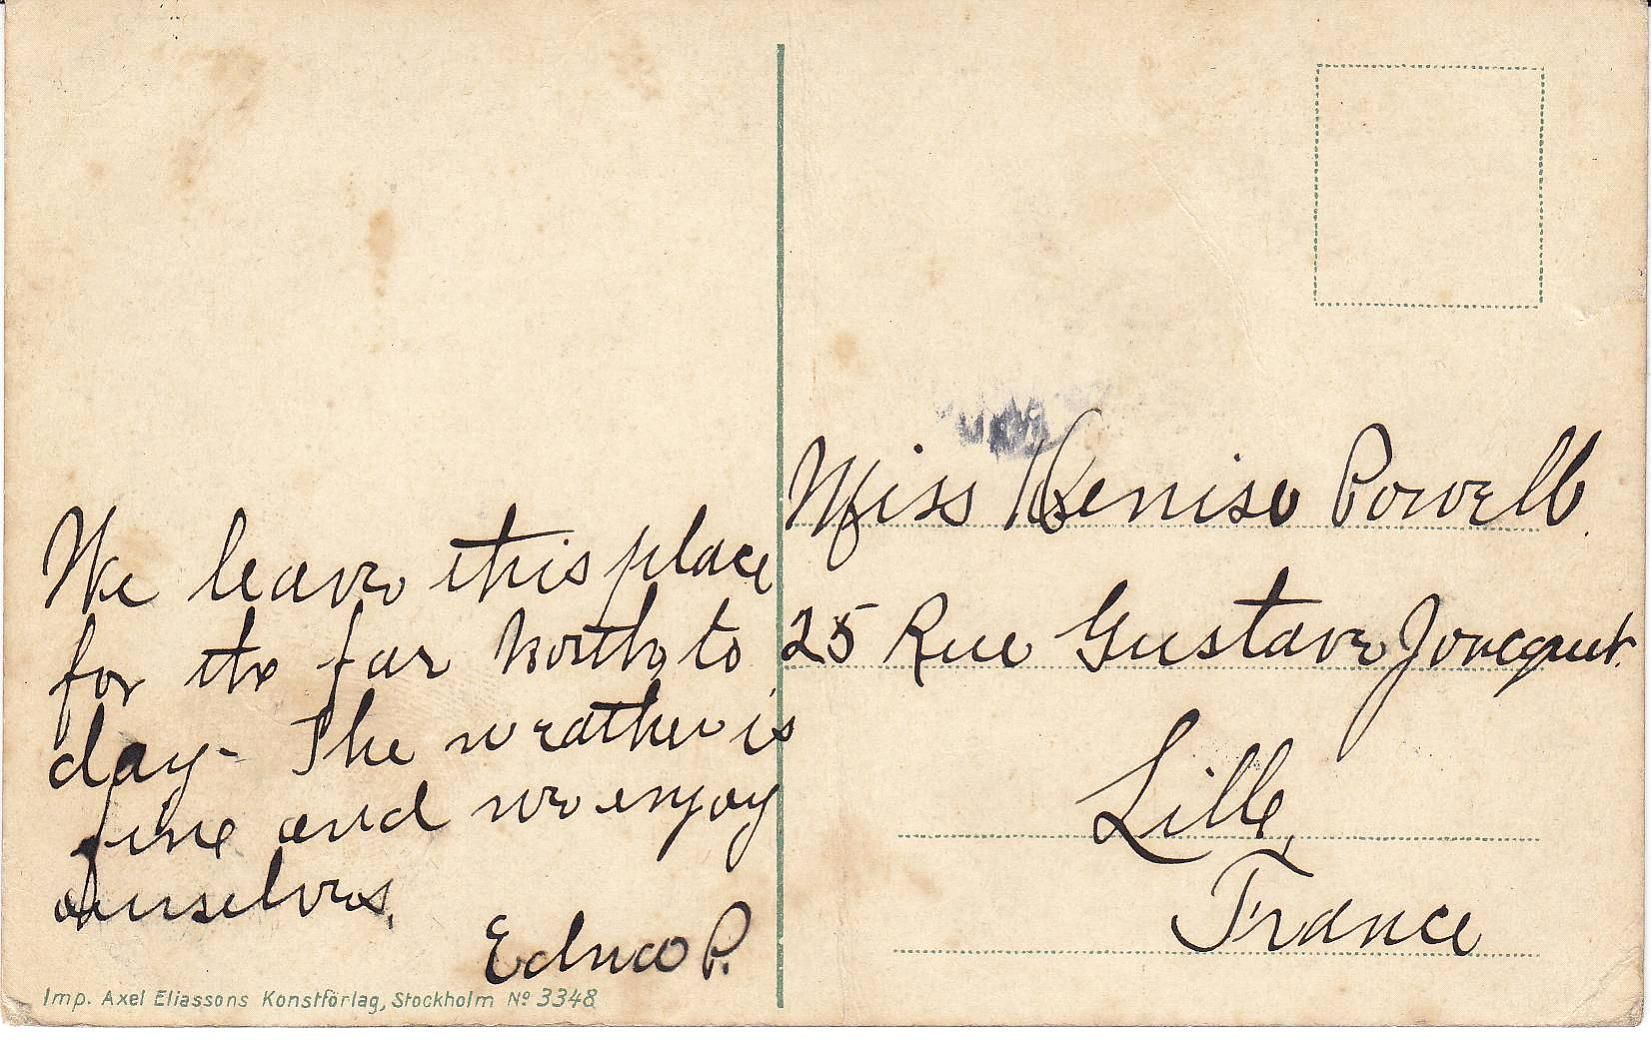 We leave this place
for the far North to
day - The weather is
fine and we enjoy
ourselves.
Edna P.
Imp. Axel Eliassons Konstförlag, Stockholm Nº 3348
Miss Denise Powell
25 Rue Gustave
Lille,
France